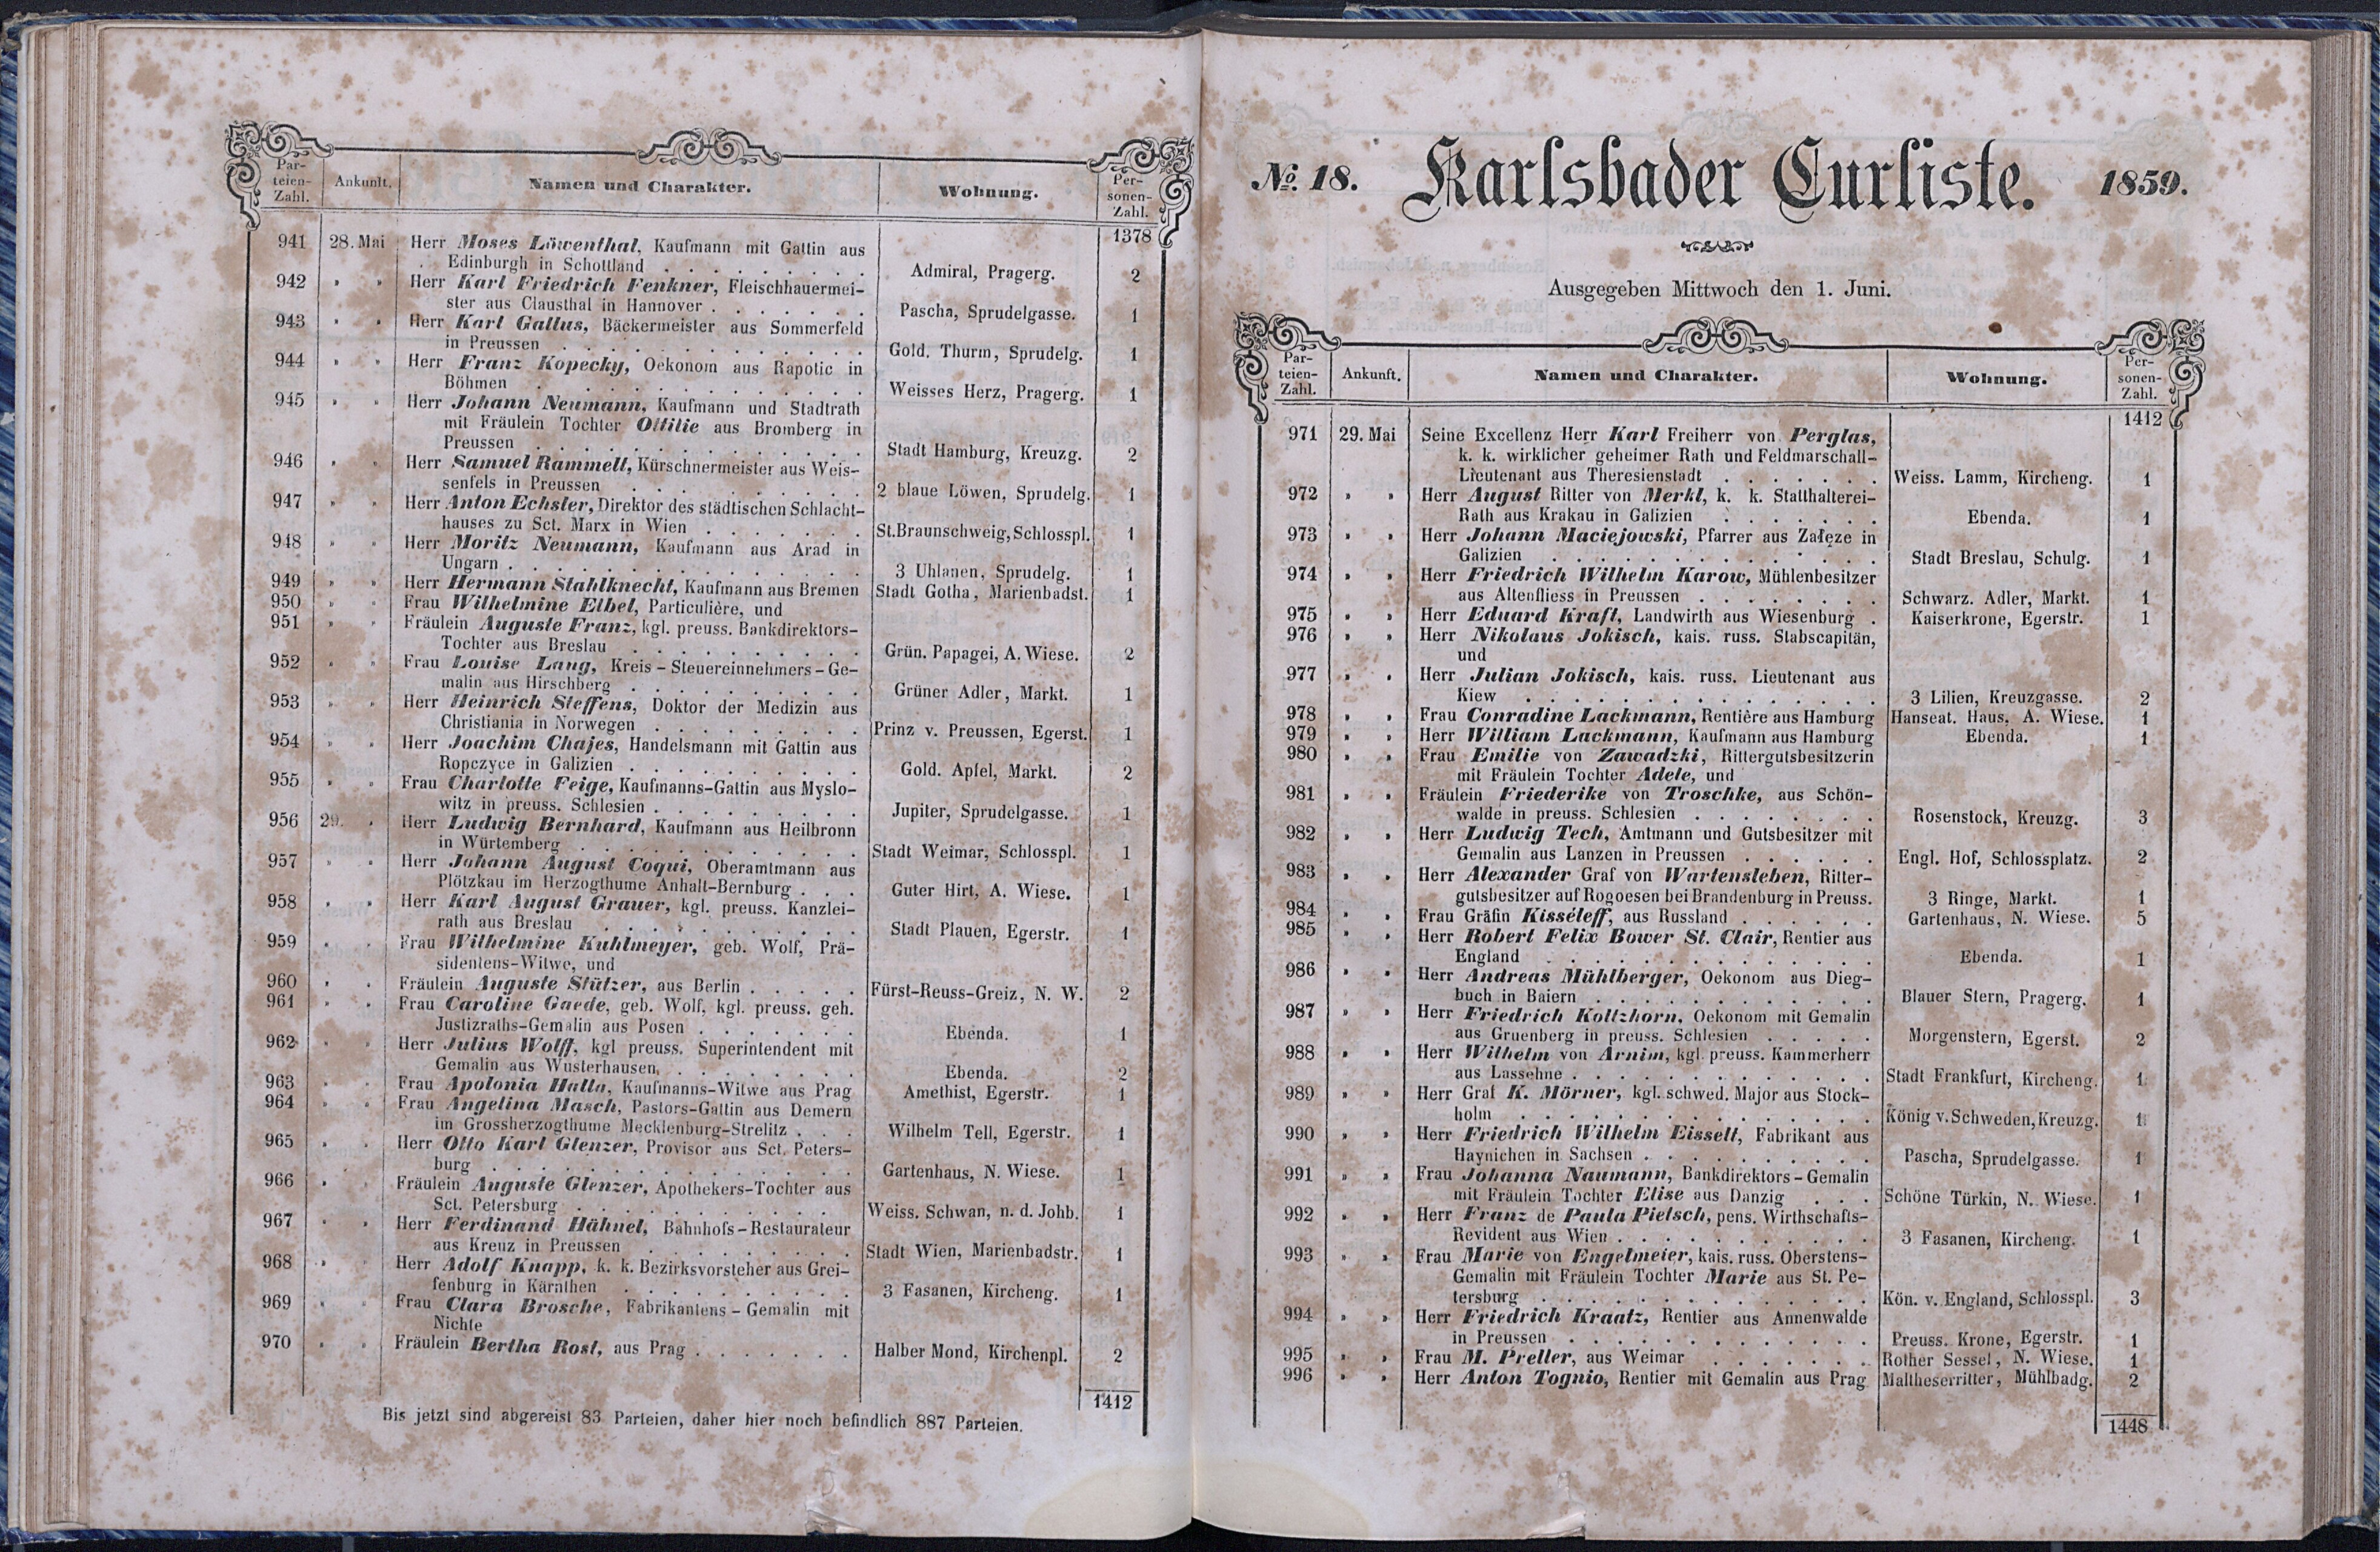 Par-
teien-
Zahl.
Ankunft.
Namen und Charakter.
Wohnung.
Per-
sonen-
Zahl.
1378
941 28. Mai Herr Moses Löwenthal, Kaufmann mit Gattin aus
Edinburgh in Schottland . . . . . . . . Admiral, Pragerg. 2
942 " " Herr Karl Friedrich Fenkner, Fleischhauermei-
ster aus Clausthal in Hannover . . . . . . Pascha, Sprudelgasse. 1
943 " " Herr Karl Gallus, Bäckermeister aus Sommerfeld
in Preussen . . . . . . . . . . . . Gold. Thurm, Sprudelg. 1
944 " " Herr Franz Kopecky, Oekonom aus Rapotic in
Böhmen . . . . . . . . . . . . Weisses Herz, Pragerg. 1
945 " " Herr Johann Neumann, Kaufmann und Stadtrath
mit Fräulein Tochter Ottilie aus Bromberg in
Preussen . . . . . . . . . . . . Stadt Hamburg, Kreuzg. 2
946 " " Herr Samuel Rammelt, Kürschnermeister aus Weis-
senfels in Preussen . . . . . . . . . 2 blaue Löwen, Sprudelg. 1
947 " " Herr Anton Echsler, Direktor des städtischen Schlacht-
hauses zu Sct. Marx in Wien . . . . . . . St.Braunschweig, Schlosspl. 1
948 " " Herr Moritz Neumann, Kaufmann aus Arad in
Ungarn . . . . . . . . . . . . . 3 Uhlanen, Sprudelg. 1
949 " " Herr Hermann Stahlknecht, Kaufmann aus Bremen Stadt Gotha, Marienbadst. 1
950 " " Frau Wilhelmine Elbel, Particulière, und
951 " " Fräulein Auguste Franz, kgl. preuss. Bankdirektors-
Tochter aus Breslau . . . . . . . . . Grün. Papagei, A. Wiese. 2
952 " " Frau Louise Lang, Kreis-Steuereinnehmers-Ge-
malin aus Hirschberg . . . . . . . . . Grüner Adler, Markt. 1
953 " " Herr Heinrich Steffens, Doktor der Medizin aus
Christiania in Norwegen . . . . . . . . Prinz v. Preussen, Egerst. 1
954 " " Herr Joachim Chajes, Handelsmann mit Gattin aus
Ropczyce in Galizien . . . . . . . . . Gold. Apfel, Markt. 2
955 " " Frau Charlotte Feige, Kaufmanns-Gattin aus Myslo-
witz in preuss. Schlesien . . . . . . . . Jupiter, Sprudelgasse. 1
956 29. " Herr Ludwig Bernhard, Kaufmann aus Heilbronn
in Würtemberg . . . . . . . . . . . Stadt Weimar, Schlosspl. 1
957 " " Herr Johann August Coqui, Oberamtmann aus
Plötzkau im Herzogthume Anhalt-Bernburg . . . Guter Hirt, A. Wiese. 1
958 " " Herr Karl August Grauer, kgl. preuss. Kanzlei-
rath aus Breslau . . . . . . . . . . Stadt Plauen, Egerstr. 1
959 " " Frau Wilhelmine Kuhlmeyer, geb. Wolf, Prä-
sidentens-Witwe, und
960 " " Fräulein Auguste Stützer, aus Berlin . . . . . Fürst-Reuss-Greiz, N. W. 2
961 " " Frau Caroline Gaede, geb. Wolf, kgl. preuss. geh.
Justizraths-Gemalin aus Posen . . . . . . . Ebenda. 1
962 " " Herr Julius Wolff, kgl preuss. Superintendent mit
Gemalin aus Wusterhausen . . . . . . . . Ebenda. 2
963 " " Frau Apolonia Halla, Kaufmanns-Witwe aus Prag Amethist, Egerstr. 1
964 " " Frau Angelina Masch, Pastors-Gattin aus Demern
im Grossherzogthume Mecklenburg-Strelitz . . . Wilhelm Tell, Egerstr. 1
965 " " Herr Otto Karl Glenzer, Provisor aus Sct. Peters-
burg . . . . . . . . . . . . . . Gartenhaus, N. Wiese. 1
966 " " Fräulein Auguste Glenzer, Apothekers-Tochter aus
Sct. Petersburg . . . . . . . . . . . Weiss. Schwan, n. d. Johb. 1
967 " " Herr Ferdinand Hähnel, Bahnhofs-Restaurateur
aus Kreuz in Preussen . . . . . . . . . Stadt Wien, Marienbadstr. 1
968 " " Herr Adolf Knapp, k. k. Bezirksvorsteher aus Grei-
fenburg in Kärnthen . . . . . . . . . 3 Fasanen, Kircheng. 1
969 " " Frau Clara Brosche, Fabrikantens-Gemalin mit
Nichte
970 " " Fräulein Bertha Rost, aus Prag . . . . . . . Halber Mond, Kirchenpl. 2
1412
Bis jetzt sind abgereist 83 Parteien, daher hier noch befindlich 887 Parteien.
No. 18. Karlsbader Curliste. 1859.
Ausgegeben Mittwoch den 1. Juni.
Par-
teien-
Zahl.
Ankunft.
Namen und Charakter.
Wohnung.
Per-
sonen-
Zahl.
1412
971 29. Mai Seine Excellenz Herr Karl Freiherr von Perglas,
k. k. wirklicher geheimer Rath und Feldmarschall-
Lieutenant aus Theresienstadt . . . . . . . Weiss. Lamm, Kircheng. 1
972 " " Herr August Ritter von Merkl, k. k. Statthalterei-
Rath aus Krakau in Galizien . . . . . . . Ebenda. 1
973 " " Herr Johann Maciejowski, Pfarrer aus Załęze in
Galizien . . . . . . . . . . . . . Stadt Breslau, Schulg. 1
974 " " Herr Friedrich Wilhelm Karow, Mühlenbesitzer
aus Altenfliess in Preussen . . . . . . . . Schwarz. Adler, Markt. 1
975 " " Herr Eduard Kraft, Landwirth aus Wiesenburg . Kaiserkrone, Egerstr. 1
976 " " Herr Nikolaus Jokisch, kais. russ. Stabscapitän,
und
977 " " Herr Julian Jokisch, kais. russ. Lieutenant aus
Kiew . . . . . . . . . . . . . . 3 Lilien, Kreuzgasse. 2
978 " " Frau Conradine Lackmann, Rentière aus Hamburg Hanseat. Haus, A. Wiese. 1
979 " " Herr William Lackmann, Kaufmann aus Hamburg Ebenda. 1
980 " " Frau Emilie von Zawadzki, Rittergutsbesitzerin
mit Fräulein Tochter Adele, und
981 " " Fräulein Friederike von Troschke, aus Schön-
walde in preuss. Schlesien . . . . . . . . Rosenstock, Kreuzg. 3
982 " " Herr Ludwig Tech, Amtmann und Gutsbesitzer mit
Gemalin aus Lanzen in Preussen . . . . . . Engl. Hof, Schlossplatz. 2
983 " " Herr Alexander Graf von Wartensleben, Ritter-
gutsbesitzer auf Rogoesen bei Brandenburg in Preuss. 3 Ringe, Markt. 1
984 " " Frau Gräfin Kisséleff, aus Russland . . . . . . Gartenhaus, N. Wiese. 5
985 " " Herr Robert Felix Bower St. Clair, Rentier aus
England . . . . . . . . . . . . . Ebenda. 1
986 " " Herr Andreas Mühlberger, Oekonom aus Dieg-
buch in Baiern . . . . . . . . . . . Blauer Stern, Pragerg. 1
987 " " Herr Friedrich Koltzhorn, Oekonom mit Gemalin
aus Gruenberg in preuss. Schlesien . . . . . Morgenstern, Egerst. 2
988 " " Herr Wilhelm von Arnim, kgl. preuss. Kammerherr
aus Lassehne . . . . . . . . . . . . Stadt Frankfurt, Kircheng. 1
989 " " Herr Graf K. Mörner, kgl. schwed. Major aus Stock-
holm . . . . . . . . . . . . . . König v. Schweden, Kreuzg. 1
990 " " Herr Friedrich Wilhelm Eisselt, Fabrikant aus
Haynichen in Sachsen . . . . . . . . . Pascha, Sprudelgasse. 1
991 " " Frau Johanna Naumann, Bankdirektors-Gemalin
mit Fräulein Tochter Elise aus Danzig . . . Schöne Türkin, N. Wiese. 1
992 " " Herr Franz de Paula Pietsch, pens. Wirthschafts-
Revident aus Wien . . . . . . . . . . 3 Fasanen, Kircheng. 1
993 " " Frau Marie von Engelmeier, kais. russ. Oberstens-
Gemalin mit Fräulein Tochter Marie aus St. Pe-
tersburg . . . . . . . . . . . . . Kön. v. England, Schlosspl. 3
994 " " Herr Friedrich Kraatz, Rentier aus Annenwalde
in Preussen . . . . . . . . . . . . Preuss. Krone, Egerstr. 1
995 " " Frau M. Preller, aus Weimar . . . . . . . Rother Sessel, N. Wiese. 1
996 " " Herr Anton Tognio, Rentier mit Gemalin aus Prag Maltheserritter, Mühlbadg. 2
1448